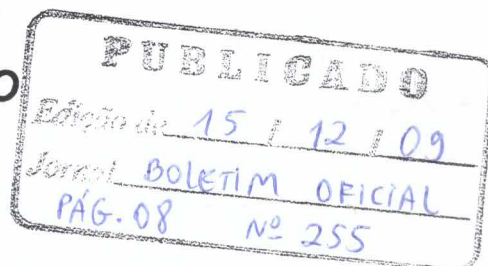 PUBLICADO
Edição de 15 / 12 / 09
Jornal BOLETIM OFICIAL
PÁG. 08 Nº 255